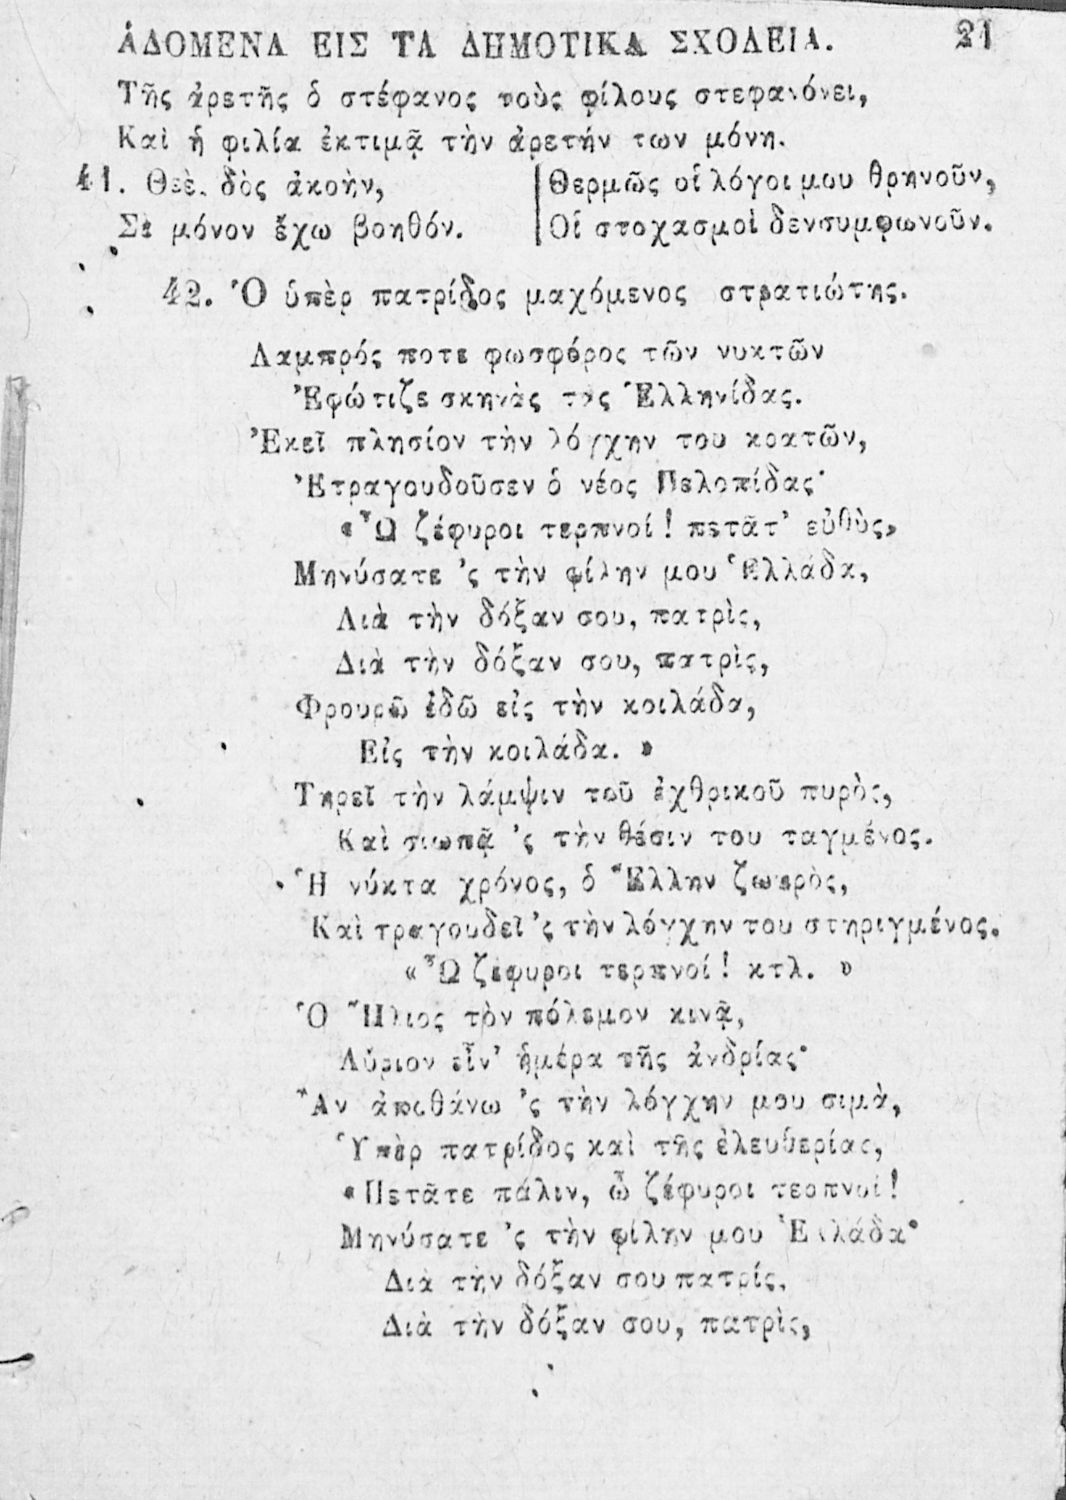 ᾈΔΟΜΕΝΑ ΕΙΣ ΤΑ ΔΗΜΟΤΙΚΑ ΣΧΟΛΕΙΑ. 21
Τῆς ἀρετῆς ὁ στέφανος τοὺς φίλους στεφανόνει,
Καὶ ἡ φιλία ἐκτιμᾷ τὴν ἀρετήν των μόνη.
41. Θεὲ. δὸς ἀκοὴν,
Σὲ μόνον ἔχω βοηθόν.
Θερμῶς οἱ λόγοι μου θρηνοῦν,
Οἱ στοχασμοὶ δενσυμφωνοῦν.
42. Ὁ ὑπὲρ πατρίδος μαχόμενος στρατιώτης.
Λαμπρός ποτε φωσφόρος τῶν νυκτῶν
Ἐφώτιζε σκηνὰς τὰς Ἑλληνίδας.
Ἐκεῖ πλησίον τὴν λόγχην του κρατῶν,
Ἐτραγουδοῦσεν ὁ νέος Πελοπίδας·
«Ὦ ζέφυροι τερπνοί! πετᾶτ' εὐθὺς,
Μηνύσατε 'ς τὴν φίλην μου Ἑλλάδα,
Διὰ τὴν δόξαν σου, πατρὶς,
Διὰ τὴν δόξαν σου, πατρὶς,
Φρουρῶ ἐδῶ εἰς τὴν κοιλάδα,
Εἰς τὴν κοιλάδα. »
Τηρεῖ τὴν λάμψιν τοῦ ἐχθρικοῦ πυρὸς,
Καὶ σιωπᾷ 'ς τὴν θέσιν του ταγμένος.
Ἡ νύκτα χρόνος, ὁ Ἕλλην ζωηρὸς,
Καὶ τραγουδεῖ 'ς τὴν λόγχην του στηριγμένος.
«Ὦ ζέφυροι τερπνοί! κτλ. »
Ὁ Ἥλιος τὸν πόλεμον κινᾷ,
Αὔριον εἶν' ἡμέρα τῆς ἀνδρίας·
Ἂν ἀποθάνω 'ς τὴν λόγχην μου σιμὰ,
Ὑπὲρ πατρίδος καὶ τῆς ἐλευθερίας,
«Πετᾶτε πάλιν, ὦ ζέφυροι τερπνοί!
Μηνύσατε 'ς τὴν φίλην μου Ἑλλάδα·
Διὰ τὴν δόξαν σου πατρίς,
Διὰ τὴν δόξαν σου, πατρὶς,